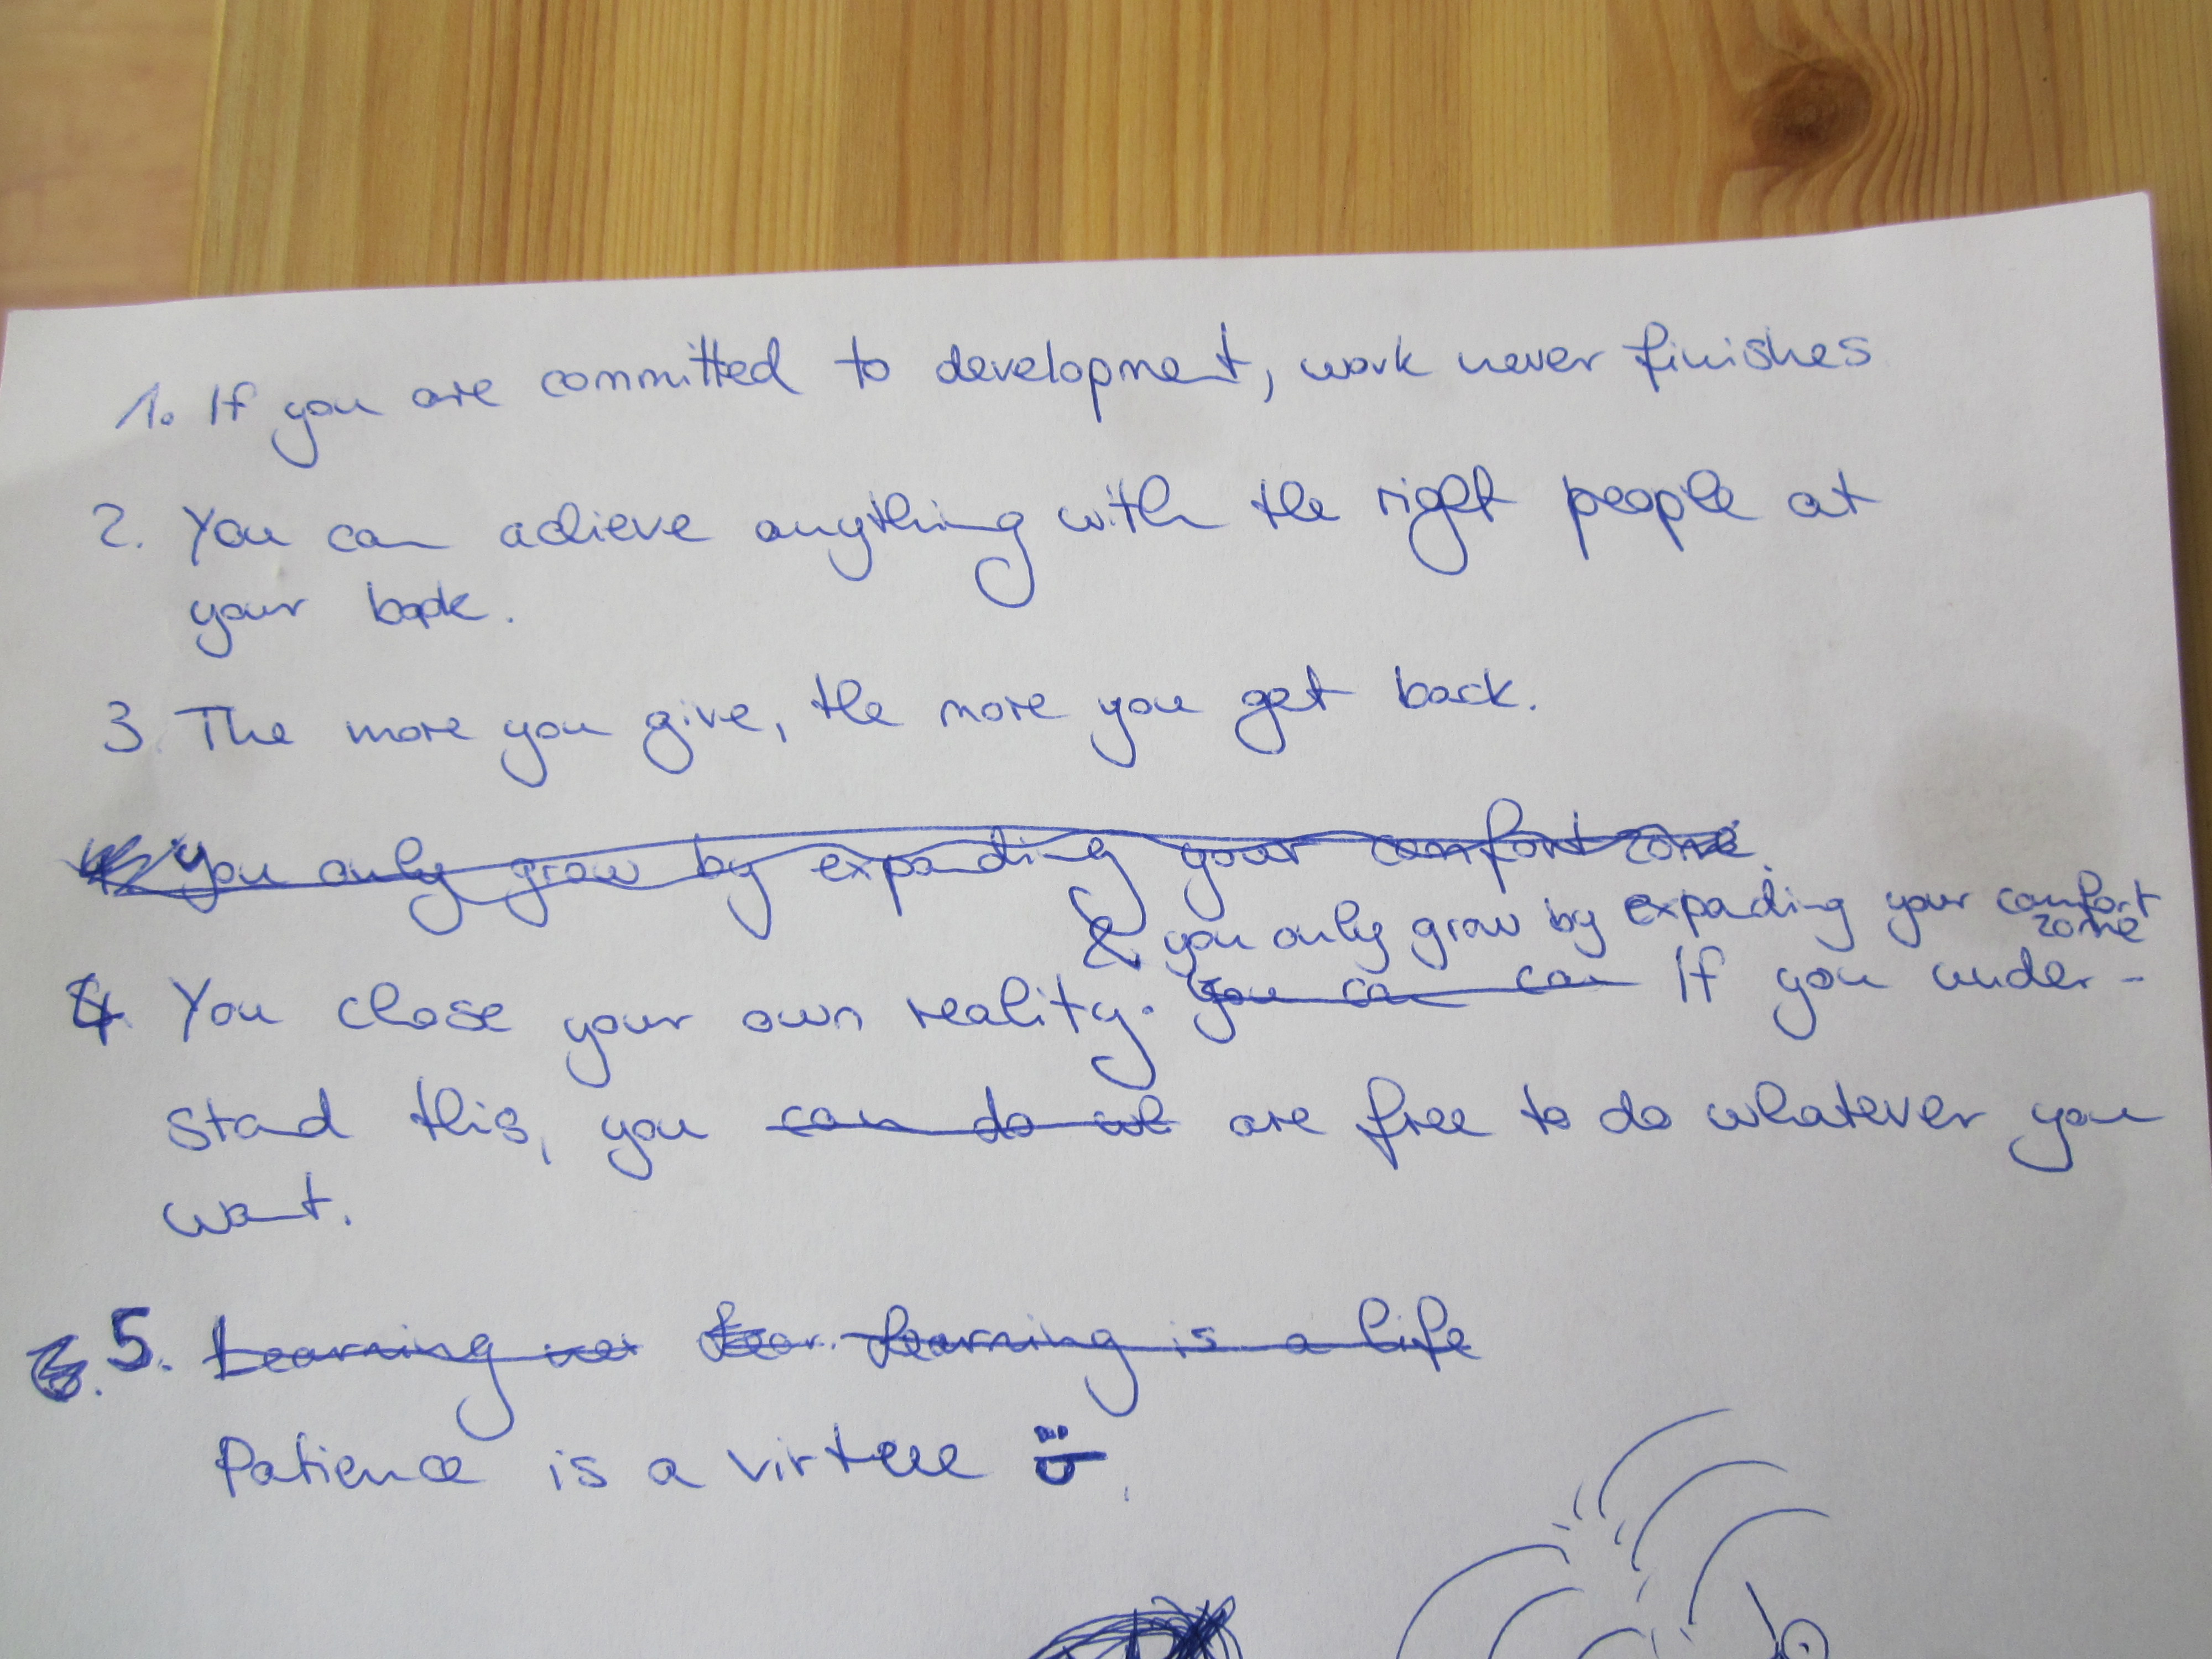 1. If you are committed to development, work never finishes
2. You can achieve anything with the right people at
your back.
3. The more you give, the more you get back.
You only grow by expanding your comfort zone.
& you only grow by expading your comfort
zone
4 You chose your own reality. You can can If you under-
stand this, you can do are free to do whatever you
want.
5. Learning is a life
Patience is a virtue